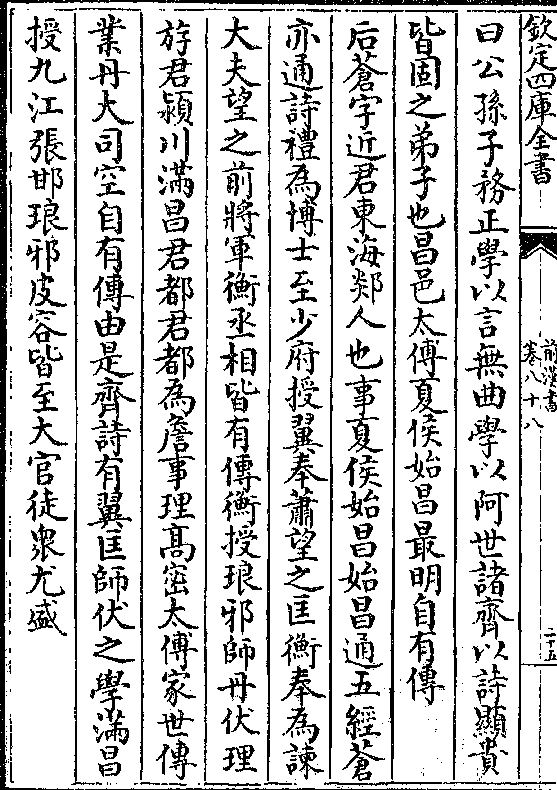 欽定四庫全書
前漢書
卷八十八
二十五
曰公孫子務正學以言無曲學以阿世諸齊以詩顯貴
皆固之弟子也昌邑太傅夏侯始昌最明自有傳
后蒼字近君東海郯人也事夏侯始昌始昌通五經蒼
亦通詩禮為博士至少府授翼奉蕭望之匡衡奉為諫
大夫望之前將軍衡丞相皆有傳衡授琅邪師丹伏理
斿君潁川滿昌君都君都為詹事理髙密太傅家世傳
業丹大司空自有傳由是齊詩有翼匡師伏之學滿昌
授九江張邯琅邪皮容皆至大官徒衆尤盛